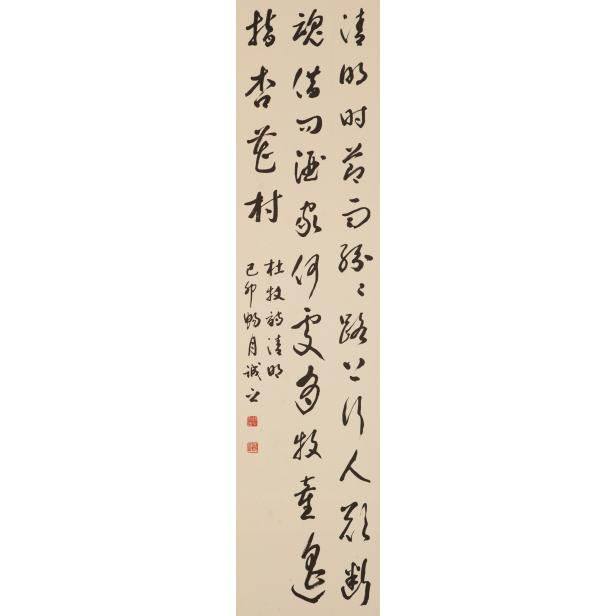 清明时节雨纷纷路上行人欲断
魂借问酒家何處有牧童遥
指杏花村
杜牧诗清明
己卯畅月诚之